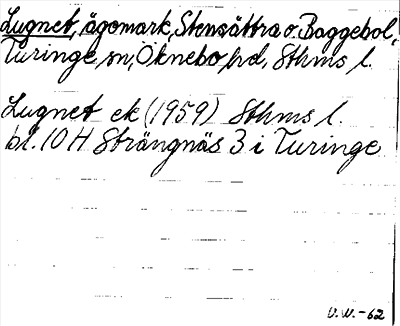 Lugnet, ägomark, Stensättra o. Baggebol,
Turinge sn, Öknebo hd, Sthms l.
Lugnet ek (1959) Sthms l.
bl. 10 H Strängnäs 3 i Turinge
U.W.-62